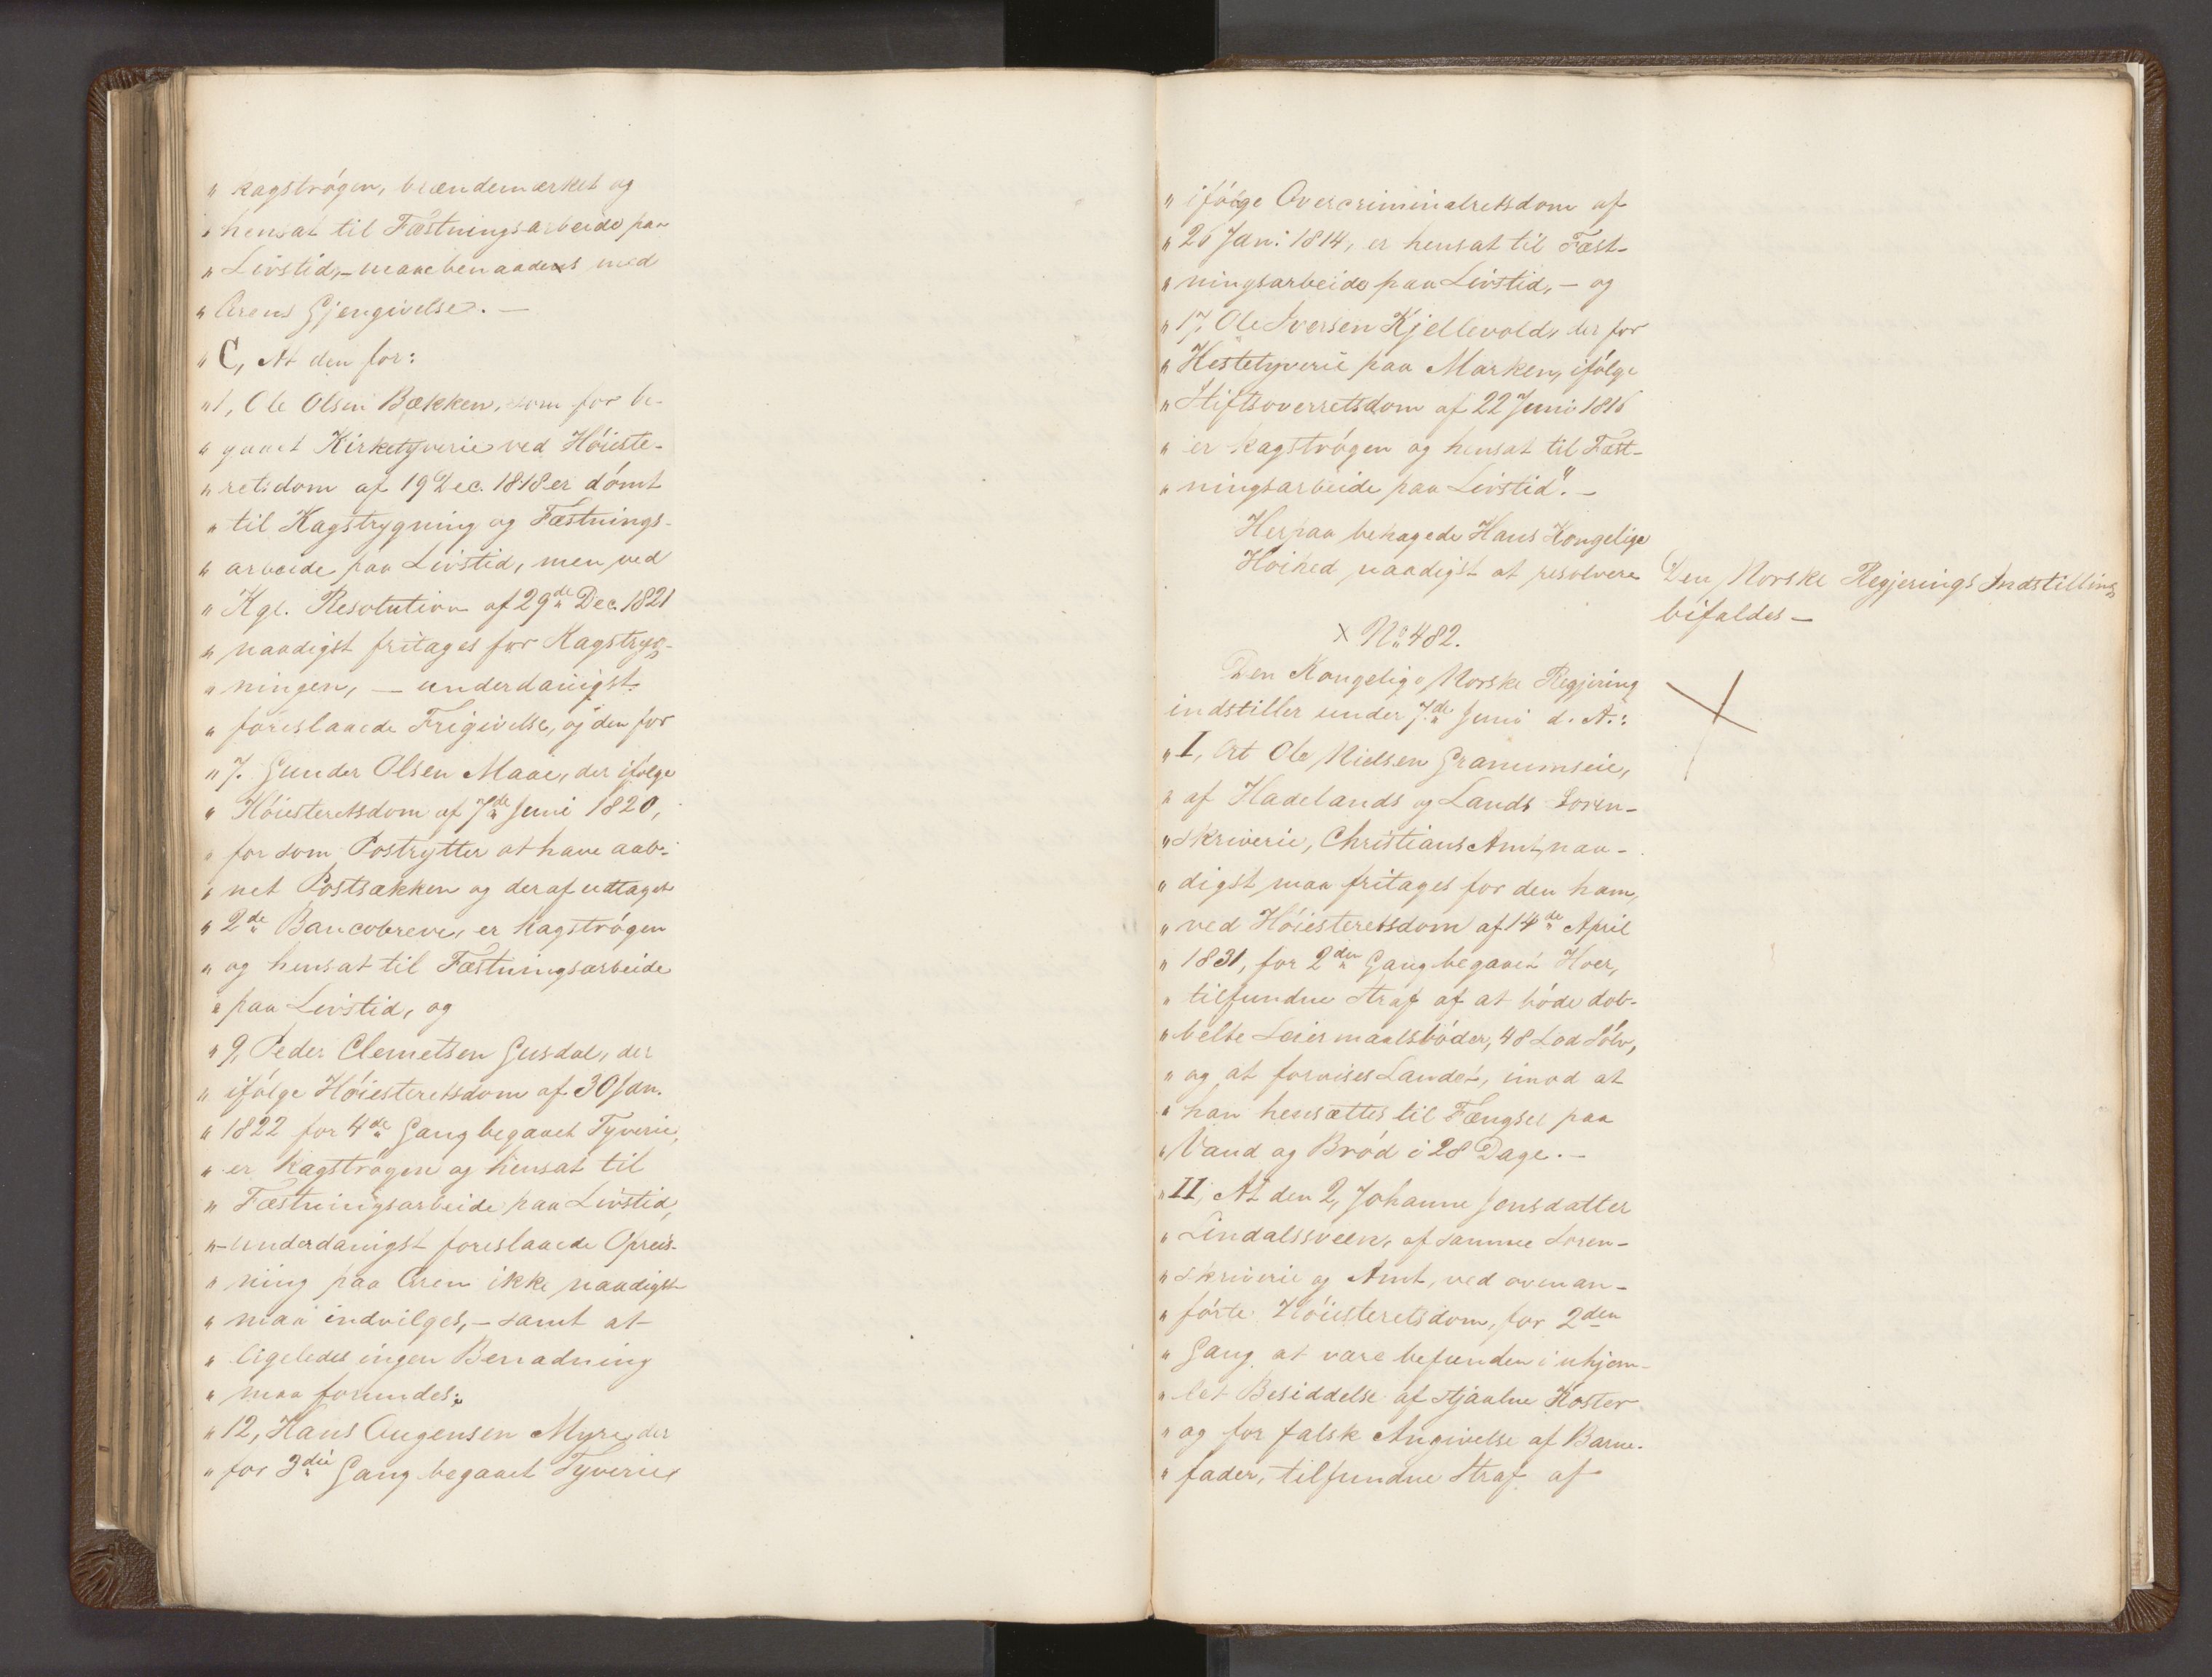 " kagstrøgen, brændemærket og
" hensat til Fæstningsarbeide paa
" Livstid, – maae benaades med
" Ærens Gjengivelse. –
" C, At den for:
" 1, Ole Olsen Bækken, som for be-
" gaaet Kirketyverie ved Høieste-
" retsdom af 19 Dec. 1818 er dømt
" til Kagstrygning og Fæstnings-
" arbeide paa Livstid, men ved
" Kgl. Resolution af 29de Dec. 1821
" naadigst fritages for Kagstryg-
" ningen, – underdanigst
" foreslaaede Frigivelse, og den for
" 7. Gunder Olsen Maae, der ifølge
" Høiesteretsdom af 7de Juni 1820,
" for som Postrytter at have aab-
" net Postsækken og deraf udtaget
" 2de Bancobreve, er kagstrøgen
" og hensat til Fæstningsarbeide
" paa Livstid, og
" 9, Peder Clemetsen Gusdal, der
" ifølge Høiesteretsdom af 30 Jan.
" 1822 for 4de Gang begaaet Tyverie,
" er kagstrøgen og hensat til
" Fæstningsarbeide paa Livstid,
" – underdanigst foreslaaede Opreis-
" ning paa Æren ikke naadigst
" maa indvilges, – samt at
" ligeledes ingen Benadning
" maa forundes:
" 12, Hans Augensen Myre, der
" for 3die Gang begaaet Tyverie,
" ifølge Overcriminalretsdom af
" 26 Jan: 1814, er hensat til Fæst-
" ningsarbeide paa Livstid, – og
" 17, Ole Iversen Kjellevold, der for
" Hestetyverie paa Marken, ifølge
" Stiftsoverretsdom af 22 Juni 1816
" er kagstrøgen og hensat til Fæst-
" ningsarbeide paa Livstid". –
Herpaa behagede Hans Kongelige
Høihed naadigst at resolvere
Den Norske Regjerings Indstilling
bifaldes –
× No 482.
Den Kongelige Norske Regjering
indstiller under 7de Juni d. A.:
" I, At Ole Nielsen Granumseie,
" af Hadelands og Lands Soren-
" skriverie, Christians Amt, naa-
" digst maa fritages for den ham,
" ved Høiesteretsdom af 14de April
" 1831, for 2den Gang begaaet Hoer,
" tilfundne Straf af at bøde dob-
" belte Leiermaalsbøder, 48 Lod Sølv,
" og at forvises Landet, imod at
" han hensættes til Fængsel paa
" Vand og Brød i 28 Dage. –
" II, At den 2, Johanne Jensdatter
" Lindalssveen, af samme Soren-
" skriverie og Amt, ved ovenan-
" førte Høiesteretsdom, for 2den
" Gang at være befunden i uhjem-
" let Besiddelse af stjaalne Koster
" og for falsk Angivelse af Barne-
" fader, tilfundne Straf af